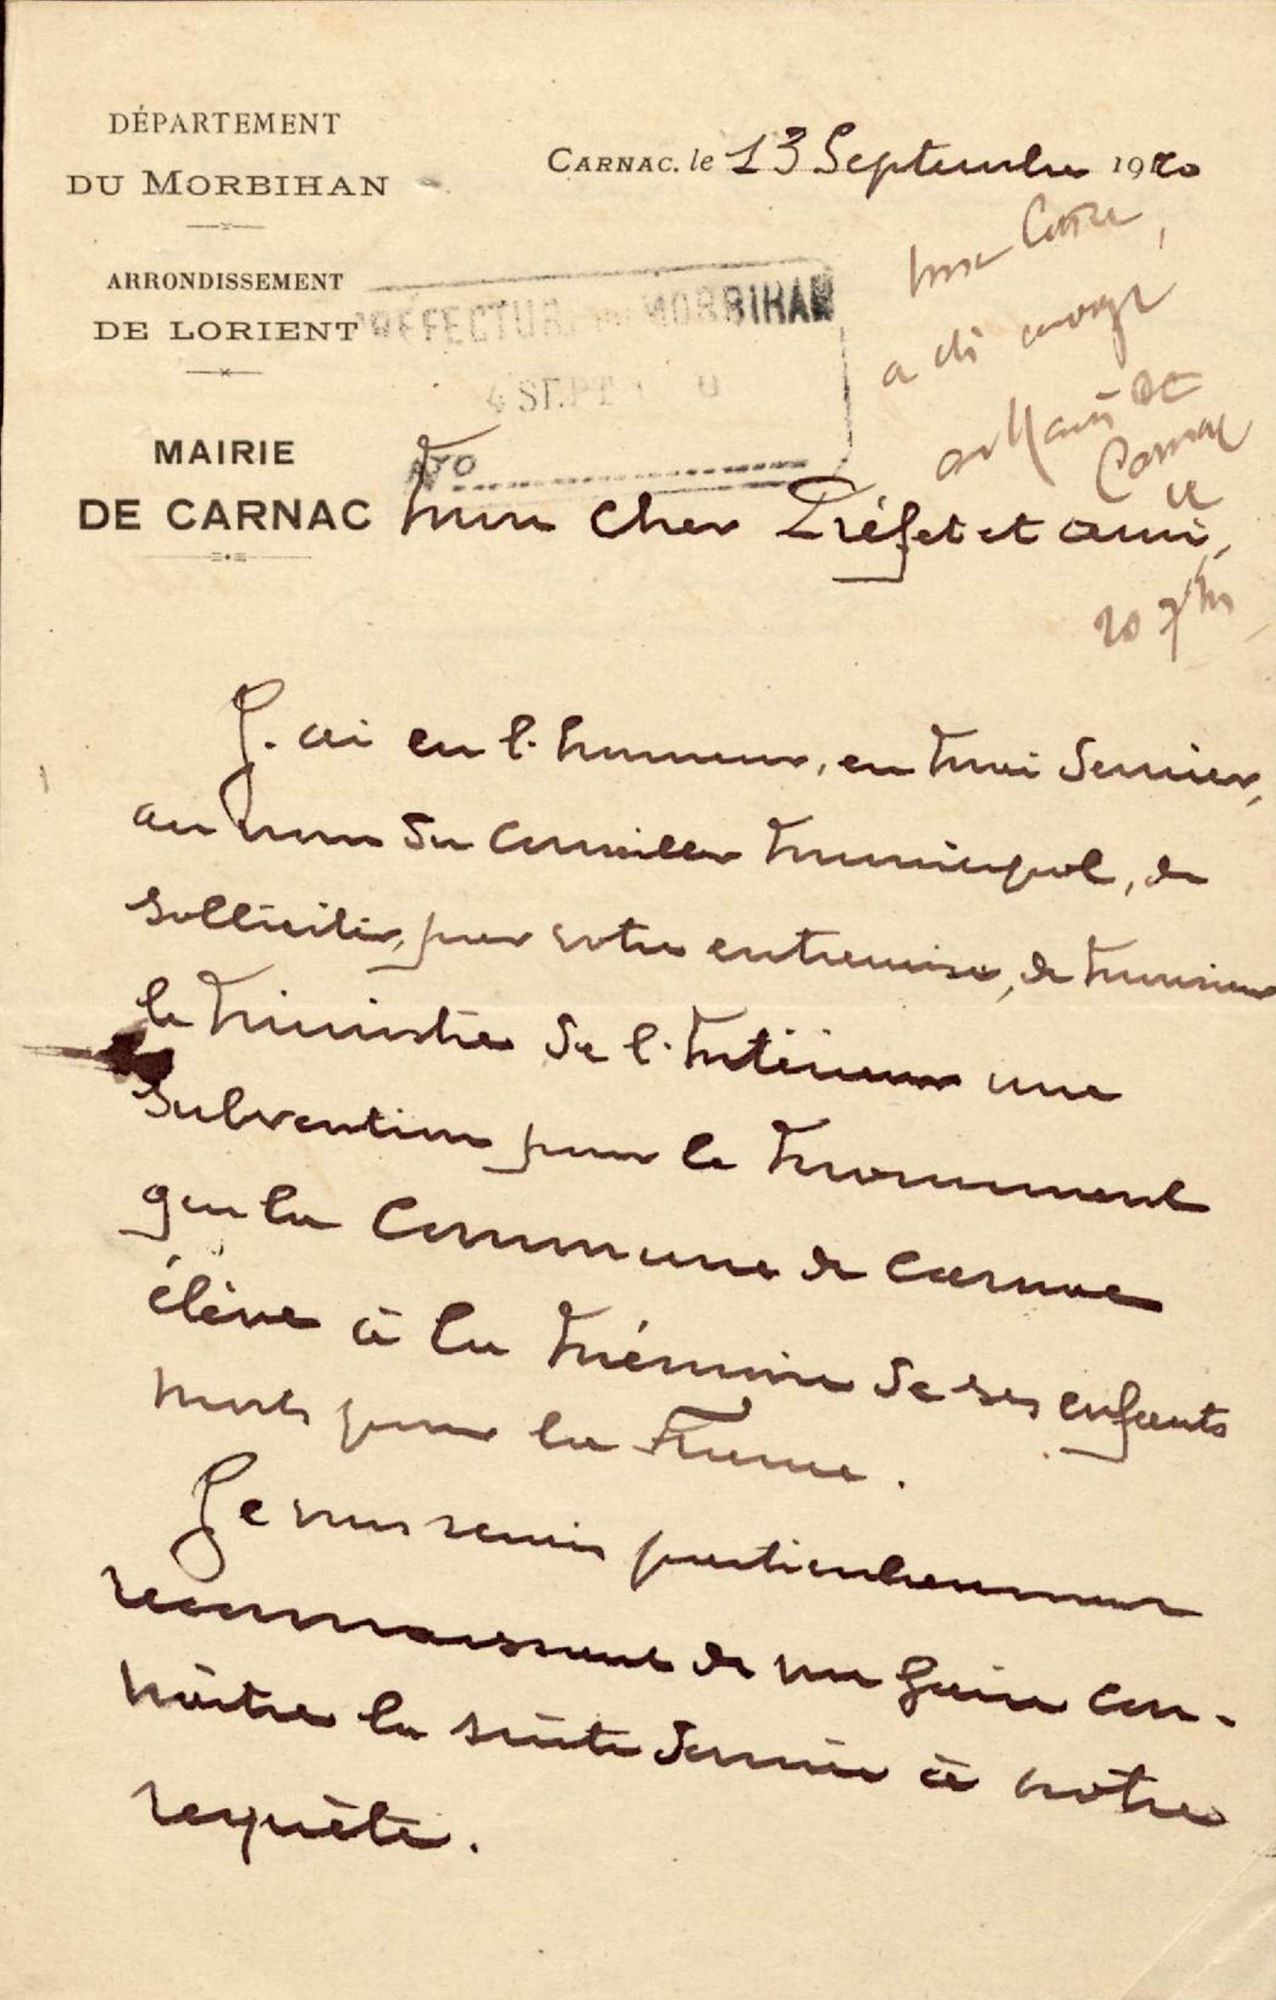 DÉPARTEMENT
DU MORBIHAN
ARRONDISSEMENT
DE LORIENT
MAIRIE
DE CARNAC
CARNAC, le 13 Septembre 1920
PRÉFECTURE DU MORBIHAN
SEPT
No
une lettre
a été envoyée
au Maire de
Carnac
le
20 7bre
Mon cher Préfet et ami,
J'ai eu l'honneur, en mai dernier,
au nom du conseiller municipal, de
solliciter, par votre entremise, de Monsieur
le Ministre de l'Intérieur une
subvention pour le monument
que la Commune de Carnac
élève à la mémoire de ses enfants
morts pour la France.
Je vous serais particulièrement
reconnaissant de me faire con-
naître la suite donnée à notre
requête.